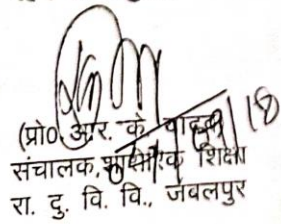 (प्रो0 आर. के. यादव)
संचालक, शारीरिक शिक्षा
रा. दु. वि. वि., जबलपुर